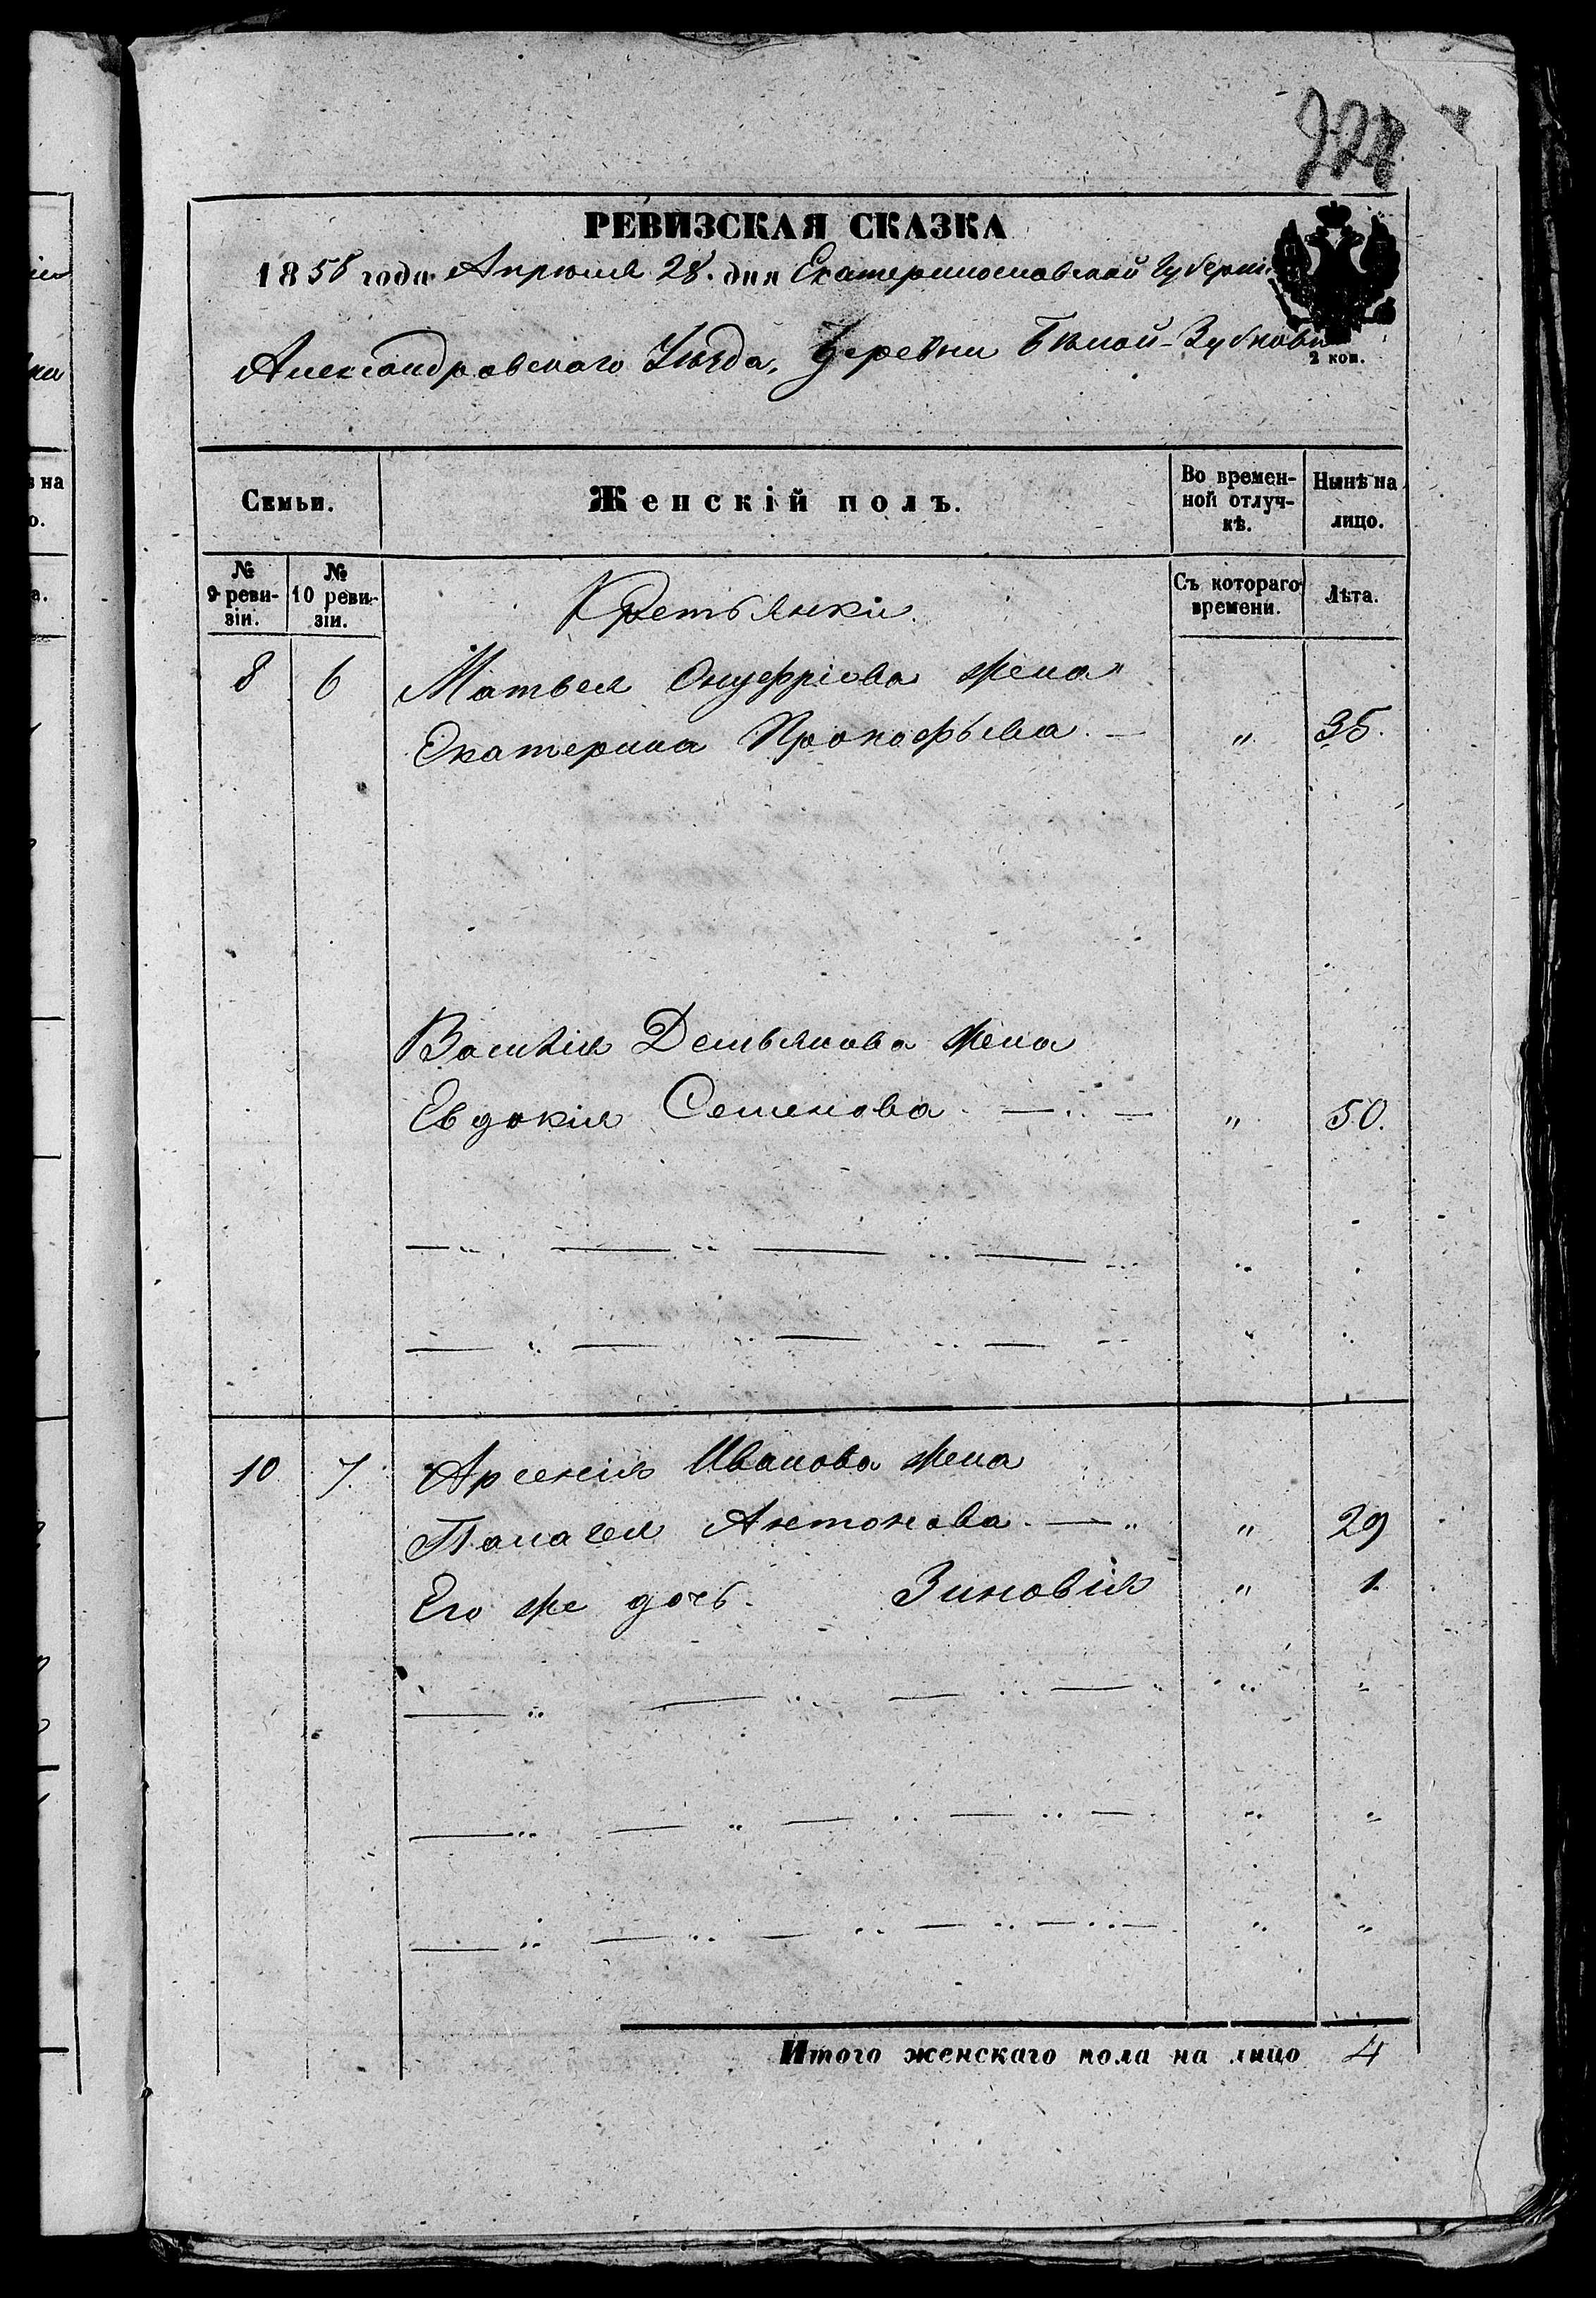 РЕВИЗСКАЯ СКАЗКА
1858 года Апреля 28. дня Екатеринославской Губерніи
Александровскаго Уѣзда, Деревни Бѣлой-Зубковки
2 коп.
Семьи.
Женскій полъ.
Во времен-
ной отлуч-
кѣ.
Нынѣ на
лицо.
№
9 реви-
зіи.
№
10 реви-
зіи.
Крестьянки.
Съ котораго
времени.
Лѣта.
8 6 Матвея Онуфріева жена
Екатерина Прокофьева. — " 35.
Василія Демьянова жена
Евдокія Семенова — " 50.
10 7. Арсенія Иванова жена
Палагея Антонова. — " 29
Его же дочь. Зиновія " 1.
Итого женскаго пола на лицо 4